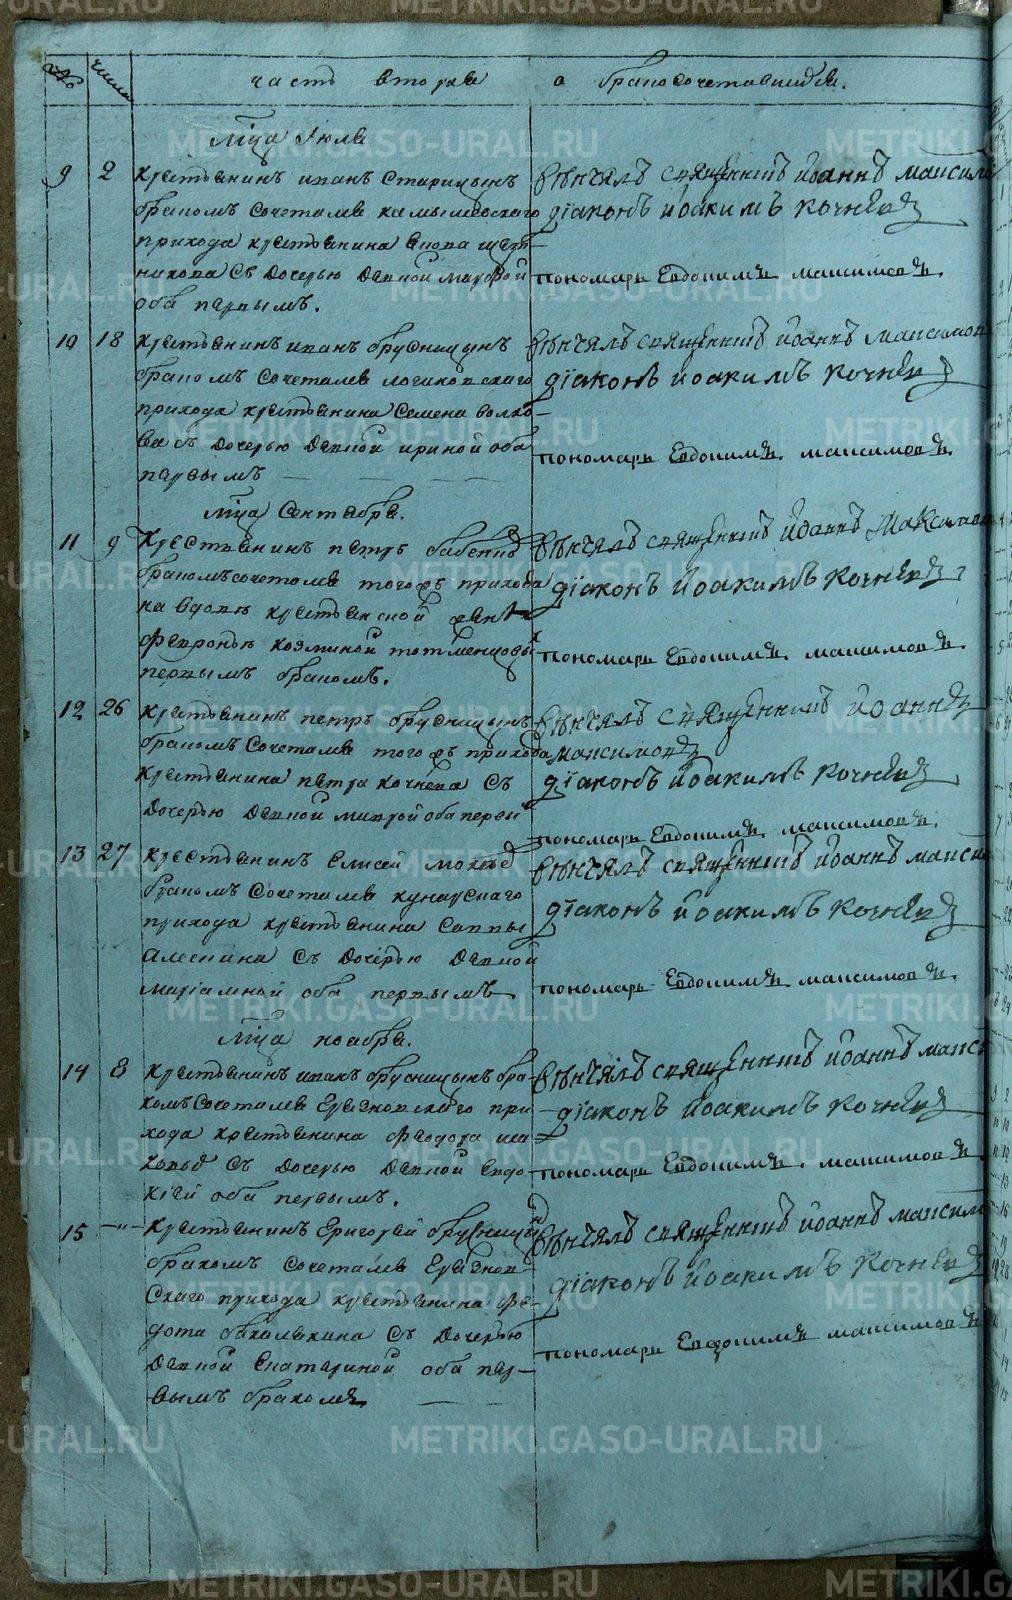 № числа часть вторая о бракосочетавшихся.
Мца Июля
9 2 Крестьянинъ иванъ Старицынъ
бракомъ сочетался камышевскаго
прихода крестьянина
никова съ дочерью девкой марфой
оба первымъ.
венчалъ священникъ Иоаннъ максимо
диаконъ иоакимъ кочневъ
пономарь Евдокимъ максимовъ.
10 18 Крестьянинъ иванъ брусницынъ
бракомъ сочетался логиновскаго
прихода крестьянина Семена волко-
ва съ дочерью девкой ириной оба
первымъ
венчалъ священникъ иоаннъ максимов
диаконъ иоакимъ кочневъ
пономарь Евдокимъ максимовъ.
Мца Сентября.
11 9 Крестьянинъ петръ бабинъ
бракомъ сочетался того жъ прихода
на вдове крестьянской жене
февронье козминой тотменцовых
первымъ бракомъ.
венчалъ священникъ Иоаннъ Максимов
диаконъ иоакимъ кочневъ
пономарь Евдокимъ максимовъ.
12 26 Крестьянинъ петръ брусницынъ
бракомъ сочетался того жъ прихода
крестьянина петра кочнева съ
дочерью девкой маврой оба первой
венчалъ священникъ иоаннъ
максимовъ
диаконъ иоакимъ кочневъ
пономарь Евдокимъ максимовъ.
13 27 Крестьянинъ Елисей
бракомъ сочетался кунарскаго
прихода крестьянина Саввы
алекина съ дочерью девкой
мариамной оба первымъ
венчалъ священникъ иоаннъ макси
диаконъ иоакимъ кочневъ
пономарь Евдокимъ максимовъ.
Мца ноября.
14 8 Крестьянинъ иванъ брусницынъ бра-
комъ сочетался Грязновскаго при-
хода крестьянина феодота
съ дочерью девкой Евдо-
кией оба первымъ.
венчалъ священникъ иоаннъ макси
диаконъ иоакимъ кочневъ
пономарь Евдокимъ максимовъ
15 —"— Крестьянинъ Григорей брусницынъ
бракомъ сочетался Грязнов-
скаго прихода крестьянина фе-
дота съ дочерью
девкой Екатериной оба пер-
вымъ бракомъ
венчалъ священникъ иоаннъ максимо
диаконъ иоакимъ кочневъ
пономарь Евдокимъ максимовъ
METRIKI.GASO-URAL.RU